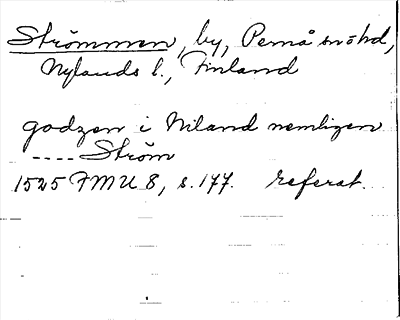 Strömmen, by, Pernå snöhd,
Nylands l., Finland
godzen i Niland nemligen
---- Ström
1525 FMU 8, s. 177. referat.